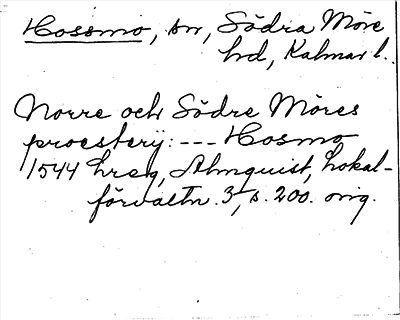 Hossmo, sn, Södra Möre
hd, Kalmar l.
Norre och Södre Möres
proestery: --- Hosmo
1544 hreg, Almquist, Lokal-
förvaltn. 3, s. 200. orig.